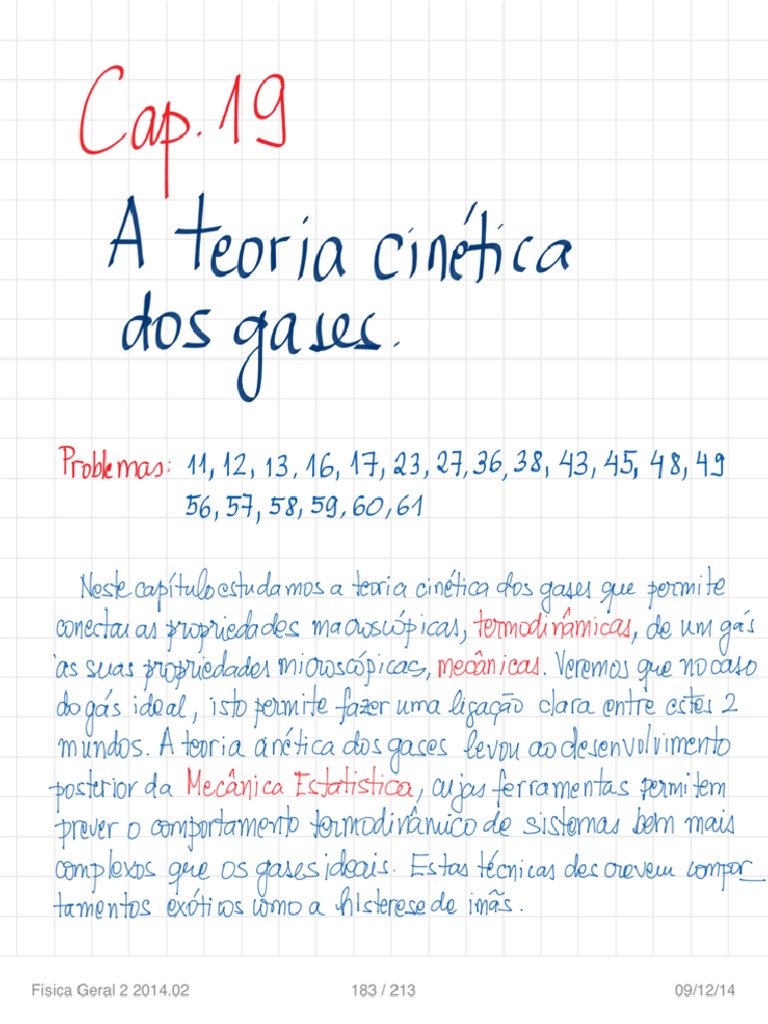 Cap. 19
A teoria cinética
dos gases.
Problemas: 11, 12, 13, 16, 17, 23, 27, 36, 38, 43, 45, 48, 49
56, 57, 58, 59, 60, 61
Neste capítulo estudamos a teoria cinética dos gases que permite
conectar as propriedades macroscópicas, termodinâmicas, de um gás
às suas propriedades microscópicas, mecânicas. Veremos que no caso
do gás ideal, isto permite fazer uma ligação clara entre estes 2
mundos. A teoria cinética dos gases levou ao desenvolvimento
posterior da Mecânica Estatística, cujas ferramentas permitem
prever o comportamento termodinâmico de sistemas bem mais
complexos que os gases ideais. Estas técnicas descrevem compor_
tamentos exóticos como a histerese de imãs.
Física Geral 2 2014.02 183 / 213 09/12/14